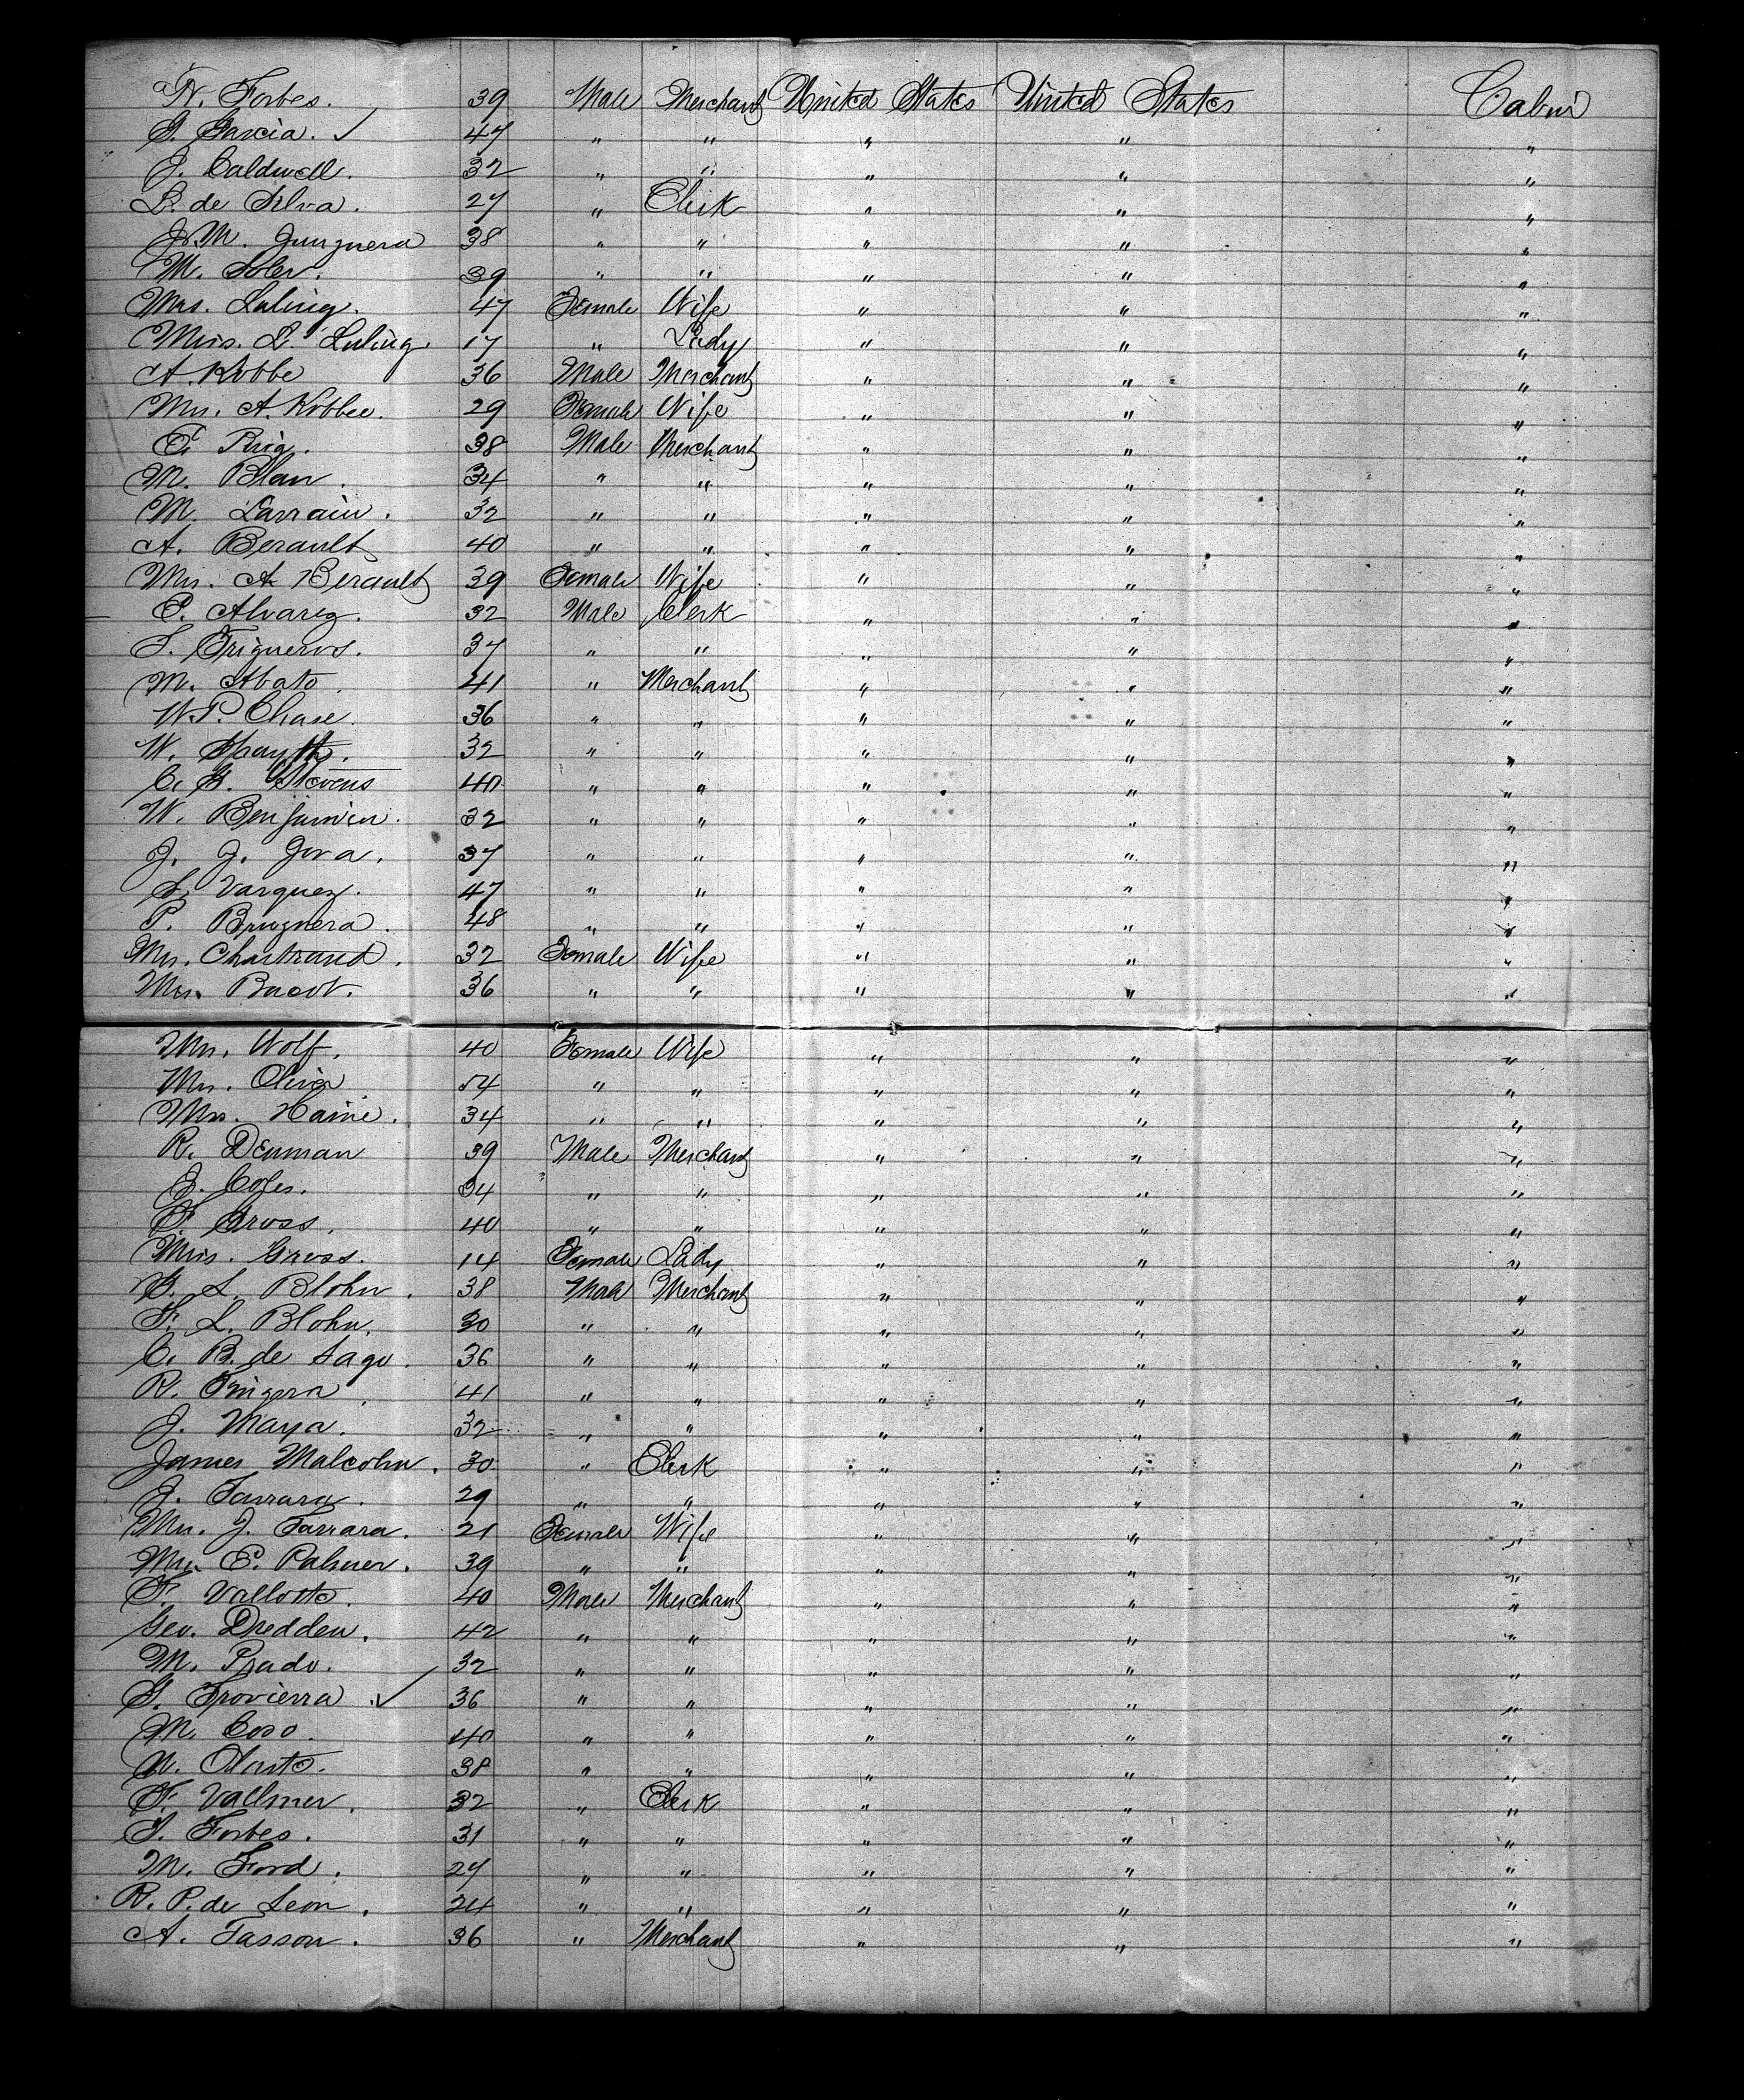 N. Forbes. 39 Male Merchant United States United States Cabin
G. Garcia. ✓ 47 " " " " "
J. Caldwell. 32 " " " " "
L. de Silva. 27 " Clerk " " "
J. M. Junquera 38 " " " " "
M. Soler. 39 " " " " "
Mrs. Luling. 47 Female Wife " " "
Miss. L. Luling. 17 " Lady " " "
A. Kobbe 36 Male Merchant " " "
Mrs. A. Kobbee. 29 Female Wife " " "
Puig. 38 Male Merchant " " "
M. Blan. 34 " " " " "
M. Larrain. 32 " " " " "
A. Berault 40 " " " " "
Mrs. A. Berault 39 Female Wife " " "
P. Alvarez. 32 Male Clerk " " "
Trigueros. 37 " " " " "
M. Abato. 41 " Merchant " " "
W. P. Chase. 36 " " " " "
W. 32 " " " " "
C. G. Stevens 40 " " " " "
W. Benjamin. 32 " " " " "
J. J. Jova. 37 " " " " "
Varquez. 47 " " " " "
P. Bruguera. 48 " " " " "
Mrs. Chartrand. 32 Female Wife " " "
Mrs. Bacot. 36 " " " " "
Mrs. Wolf. 40 Female Wife " " "
Mrs. Oliva 54 " " " " "
Mrs. Haine. 34 " " " " "
R. Denman 39 Male Merchant " " "
J. Cofes. 34 " " " " "
Gross. 40 " " " " "
Miss. Gross. 14 Female Lady " " "
G. L. Blohn. 38 Male Merchant " " "
F. L. Blohn. 30 " " " " "
C. B. de Lago. 36 " " " " "
R. 41 " " " " "
J. Maya. 32 " " " " "
James Malcohn. 30 " Clerk " " "
J. Farrara. 29 " " " " "
Mrs. J. Farrara. 21 Female Wife " " "
Mrs. E. Palmer. 39 " " " " "
F. Vallotto. 40 Male Merchant " " "
Geo. Dredden. 42 " " " " "
M. Prado. 32 " " " " "
G. Trovierra ✓ 36 " " " " "
M. Coso. 40 " " " " "
N. Olarte. 38 " " " " "
F. Vallmer. 32 " Clerk " " "
Forbes. 31 " " " " "
M. Ford. 27 " " " " "
R. P. de Leon. 24 " " " " "
A. Tasson. 36 " Merchant " " "